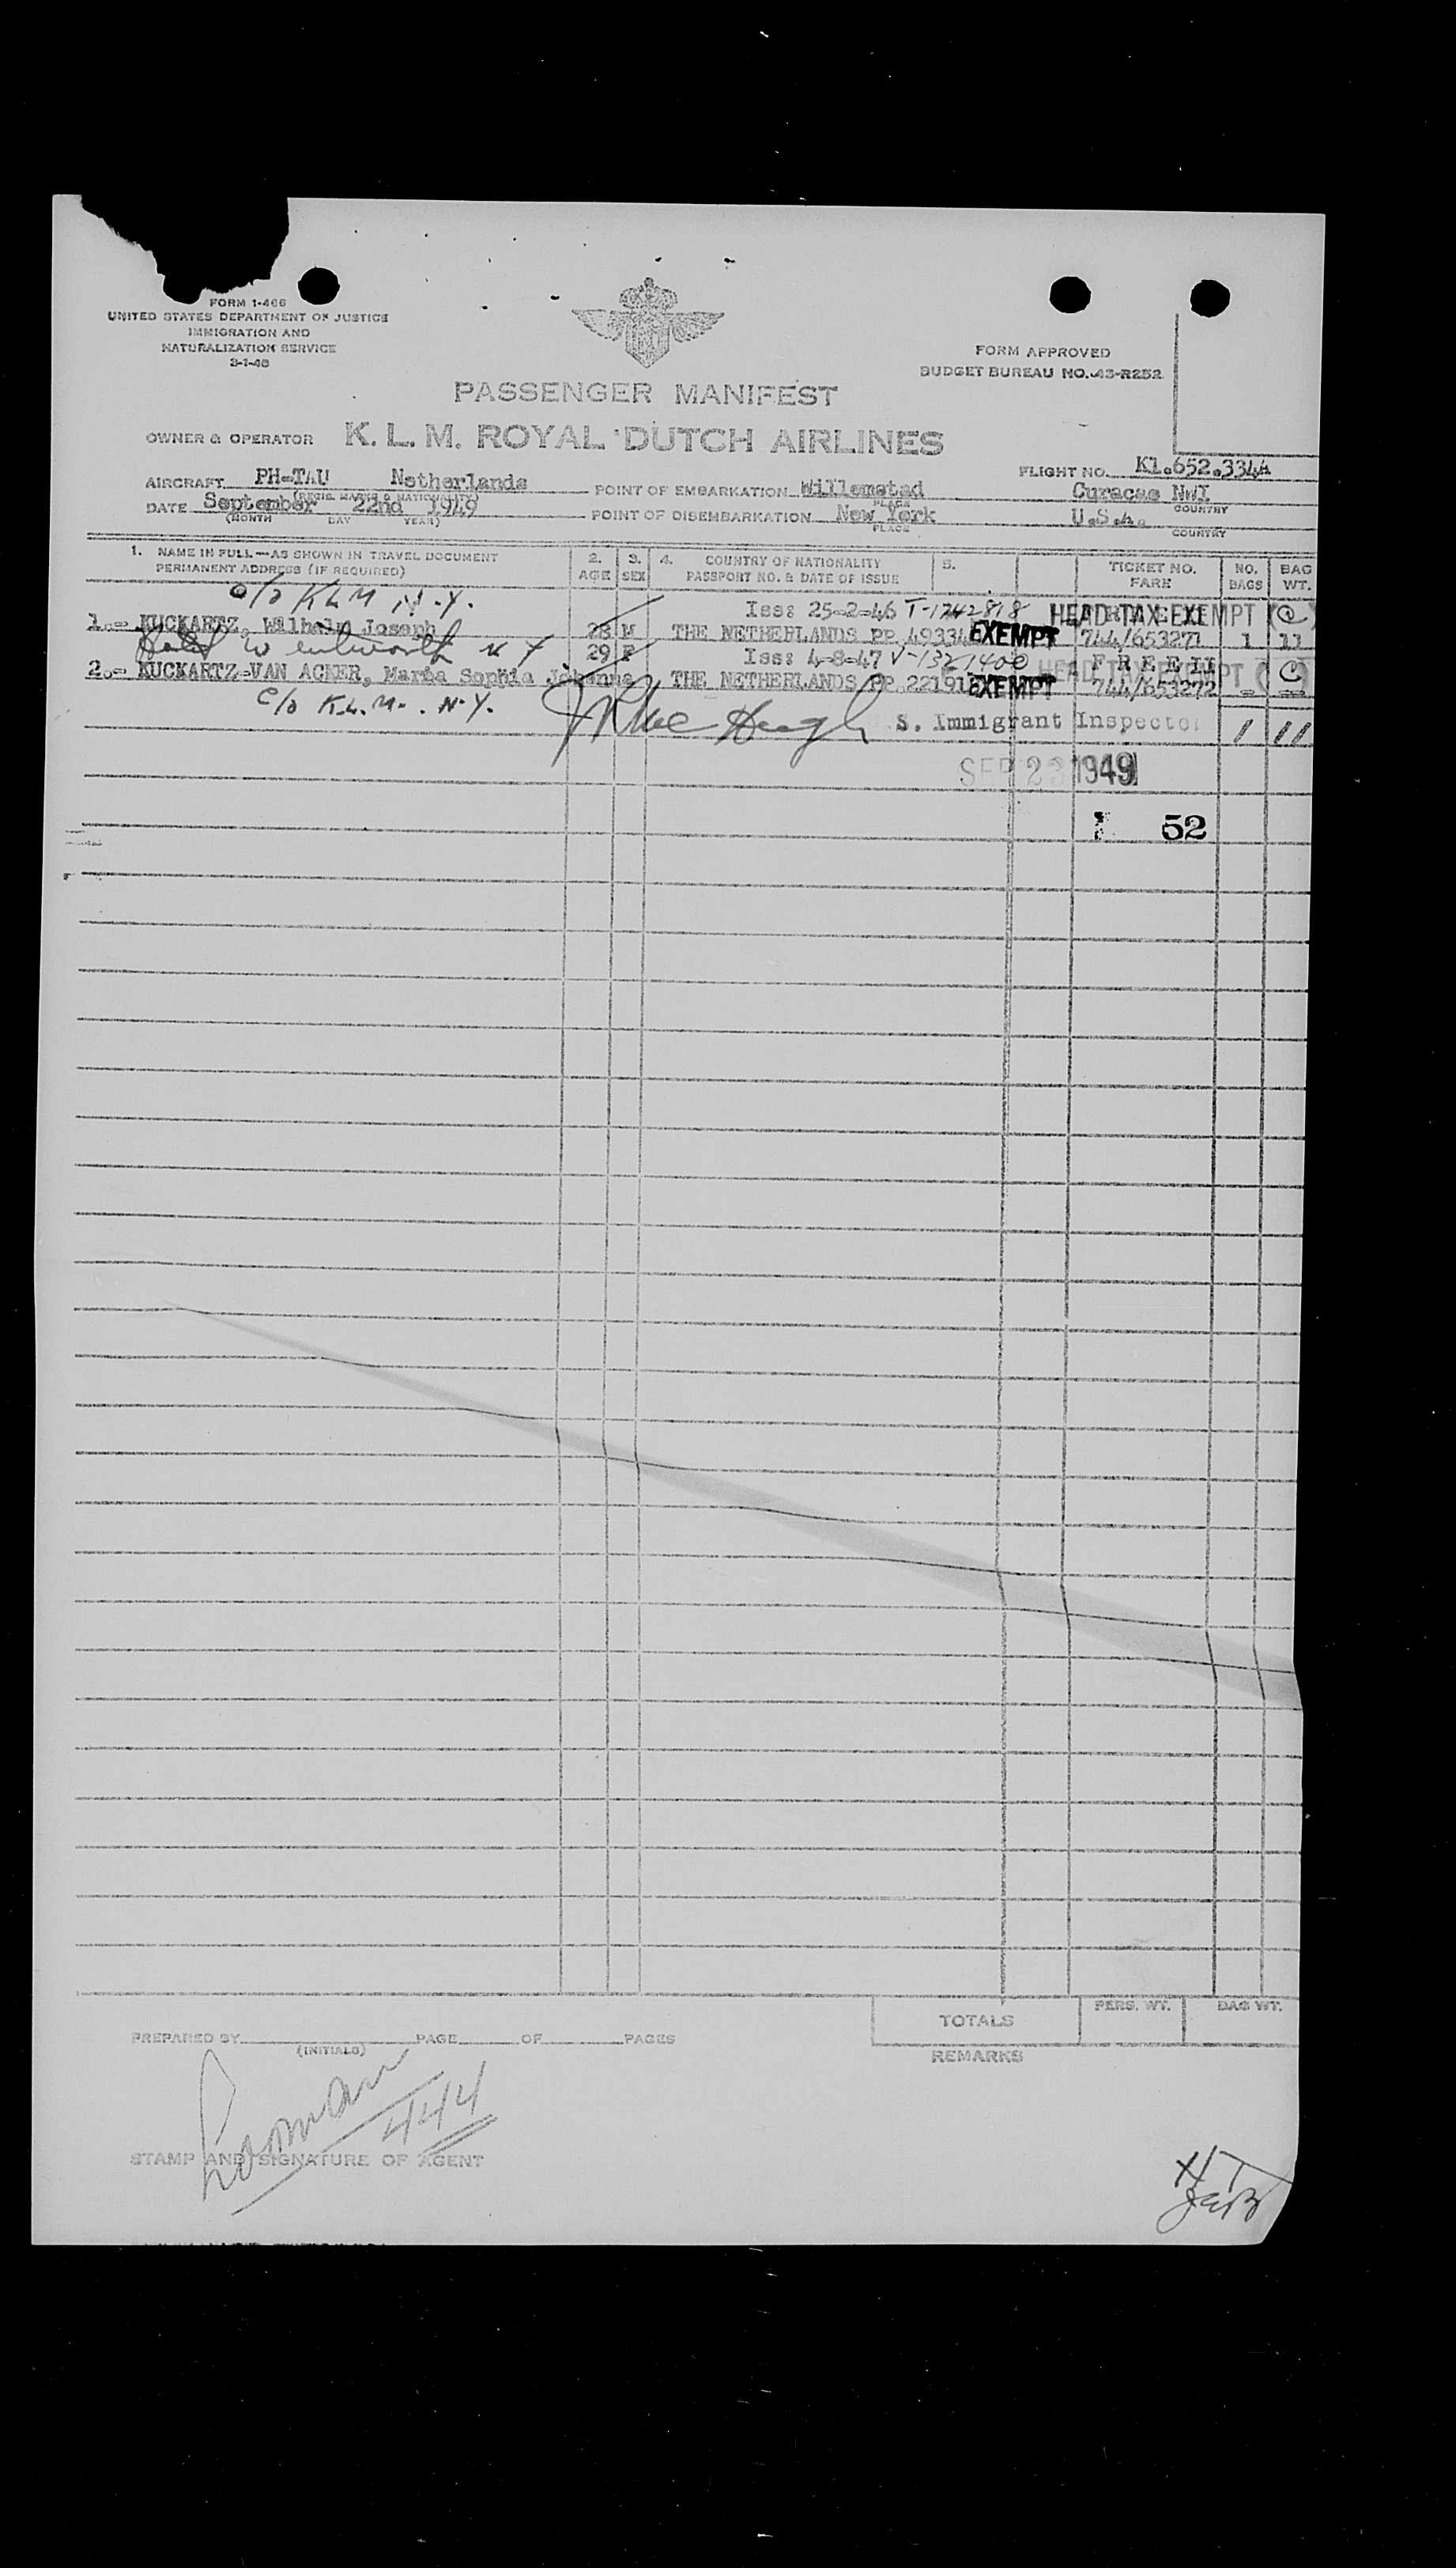 FORM 1-466
UNITED STATES DEPARTMENT OF JUSTICE
IMMIGRATION AND
NATURALIZATION SERVICE
3-1-48
FORM APPROVED
BUDGET BUREAU NO. 43-R252
PASSENGER MANIFEST
OWNER & OPERATOR K. L. M. ROYAL DUTCH AIRLINES
AIRCRAFT PH-TAU Netherlands
(REGIS. MARKS & NATIONALITY)
FLIGHT NO. Kl.652.334A
POINT OF EMBARKATION Willemstad Curacao NWI
PLACE COUNTRY
DATE September 22nd 1949
(MONTH DAY YEAR)
POINT OF DISEMBARKATION New York U.S.A.
PLACE COUNTRY
1. NAME IN FULL—AS SHOWN IN TRAVEL DOCUMENT
PERMANENT ADDRESS (IF REQUIRED)
2. AGE
3. SEX
4. COUNTRY OF NATIONALITY
PASSPORT NO. & DATE OF ISSUE
5.
TICKET NO.
FARE
NO. BAGS
BAG WT.
c/o KLM N.Y.
Iss: 25-2-46 T-1242818 HEAD TAX EXEMPT (C)
1.- KUCKARTZ, Wilhelm Joseph 28 M THE NETHERLANDS PP 49334 EXEMPT 744/653271 1 11
Hotel Wentworth N Y
Iss: 4-8-47 V-1321400 FREE HEAD TAX EXEMPT (C)
2.- KUCKARTZ-VAN ACKER, Marha Sophia Johanna 29 F THE NETHERLANDS PP 22191 EXEMPT 744/653272 - -
c/o K.L.M. N.Y.
S. Immigrant Inspector 1 11
SEP 1949
52
TOTALS
PERS. WT.
BAG WT.
PREPARED BY PAGE OF PAGES
(INITIALS)
REMARKS
444
STAMP AND SIGNATURE OF AGENT
HT